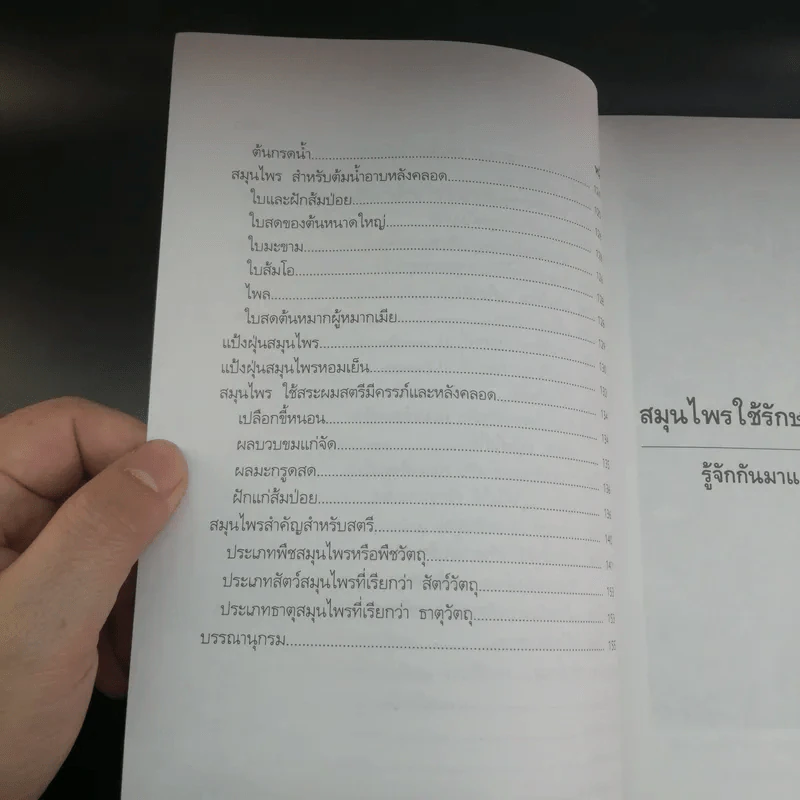 ต้นกรดน้ำ
สมุนไพร สำหรับต้มน้ำอาบหลังคลอด
ใบและฝักส้มป่อย
ใบสดของต้นหนาดใหญ่
ใบมะขาม
ใบส้มโอ
ไพล
ใบสดต้นหมากผู้หมากเมีย
แป้งฝุ่นสมุนไพร
แป้งฝุ่นสมุนไพรหอมเย็น
สมุนไพร ใช้สระผมสตรีมีครรภ์และหลังคลอด
เปลือกขี้หนอน
ผลบวบขมแก่จัด
ผลมะกรูดสด
ฝักแก่ส้มป่อย
สมุนไพรสำคัญสำหรับสตรี
ประเภทพืชสมุนไพรหรือพืชวัตถุ
ประเภทสัตว์สมุนไพรที่เรียกว่า สัตว์วัตถุ
ประเภทธาตุสมุนไพรที่เรียกว่า ธาตุวัตถุ
บรรณานุกรม
สมุนไพรใช้รักษ
รู้จักกันมาแ